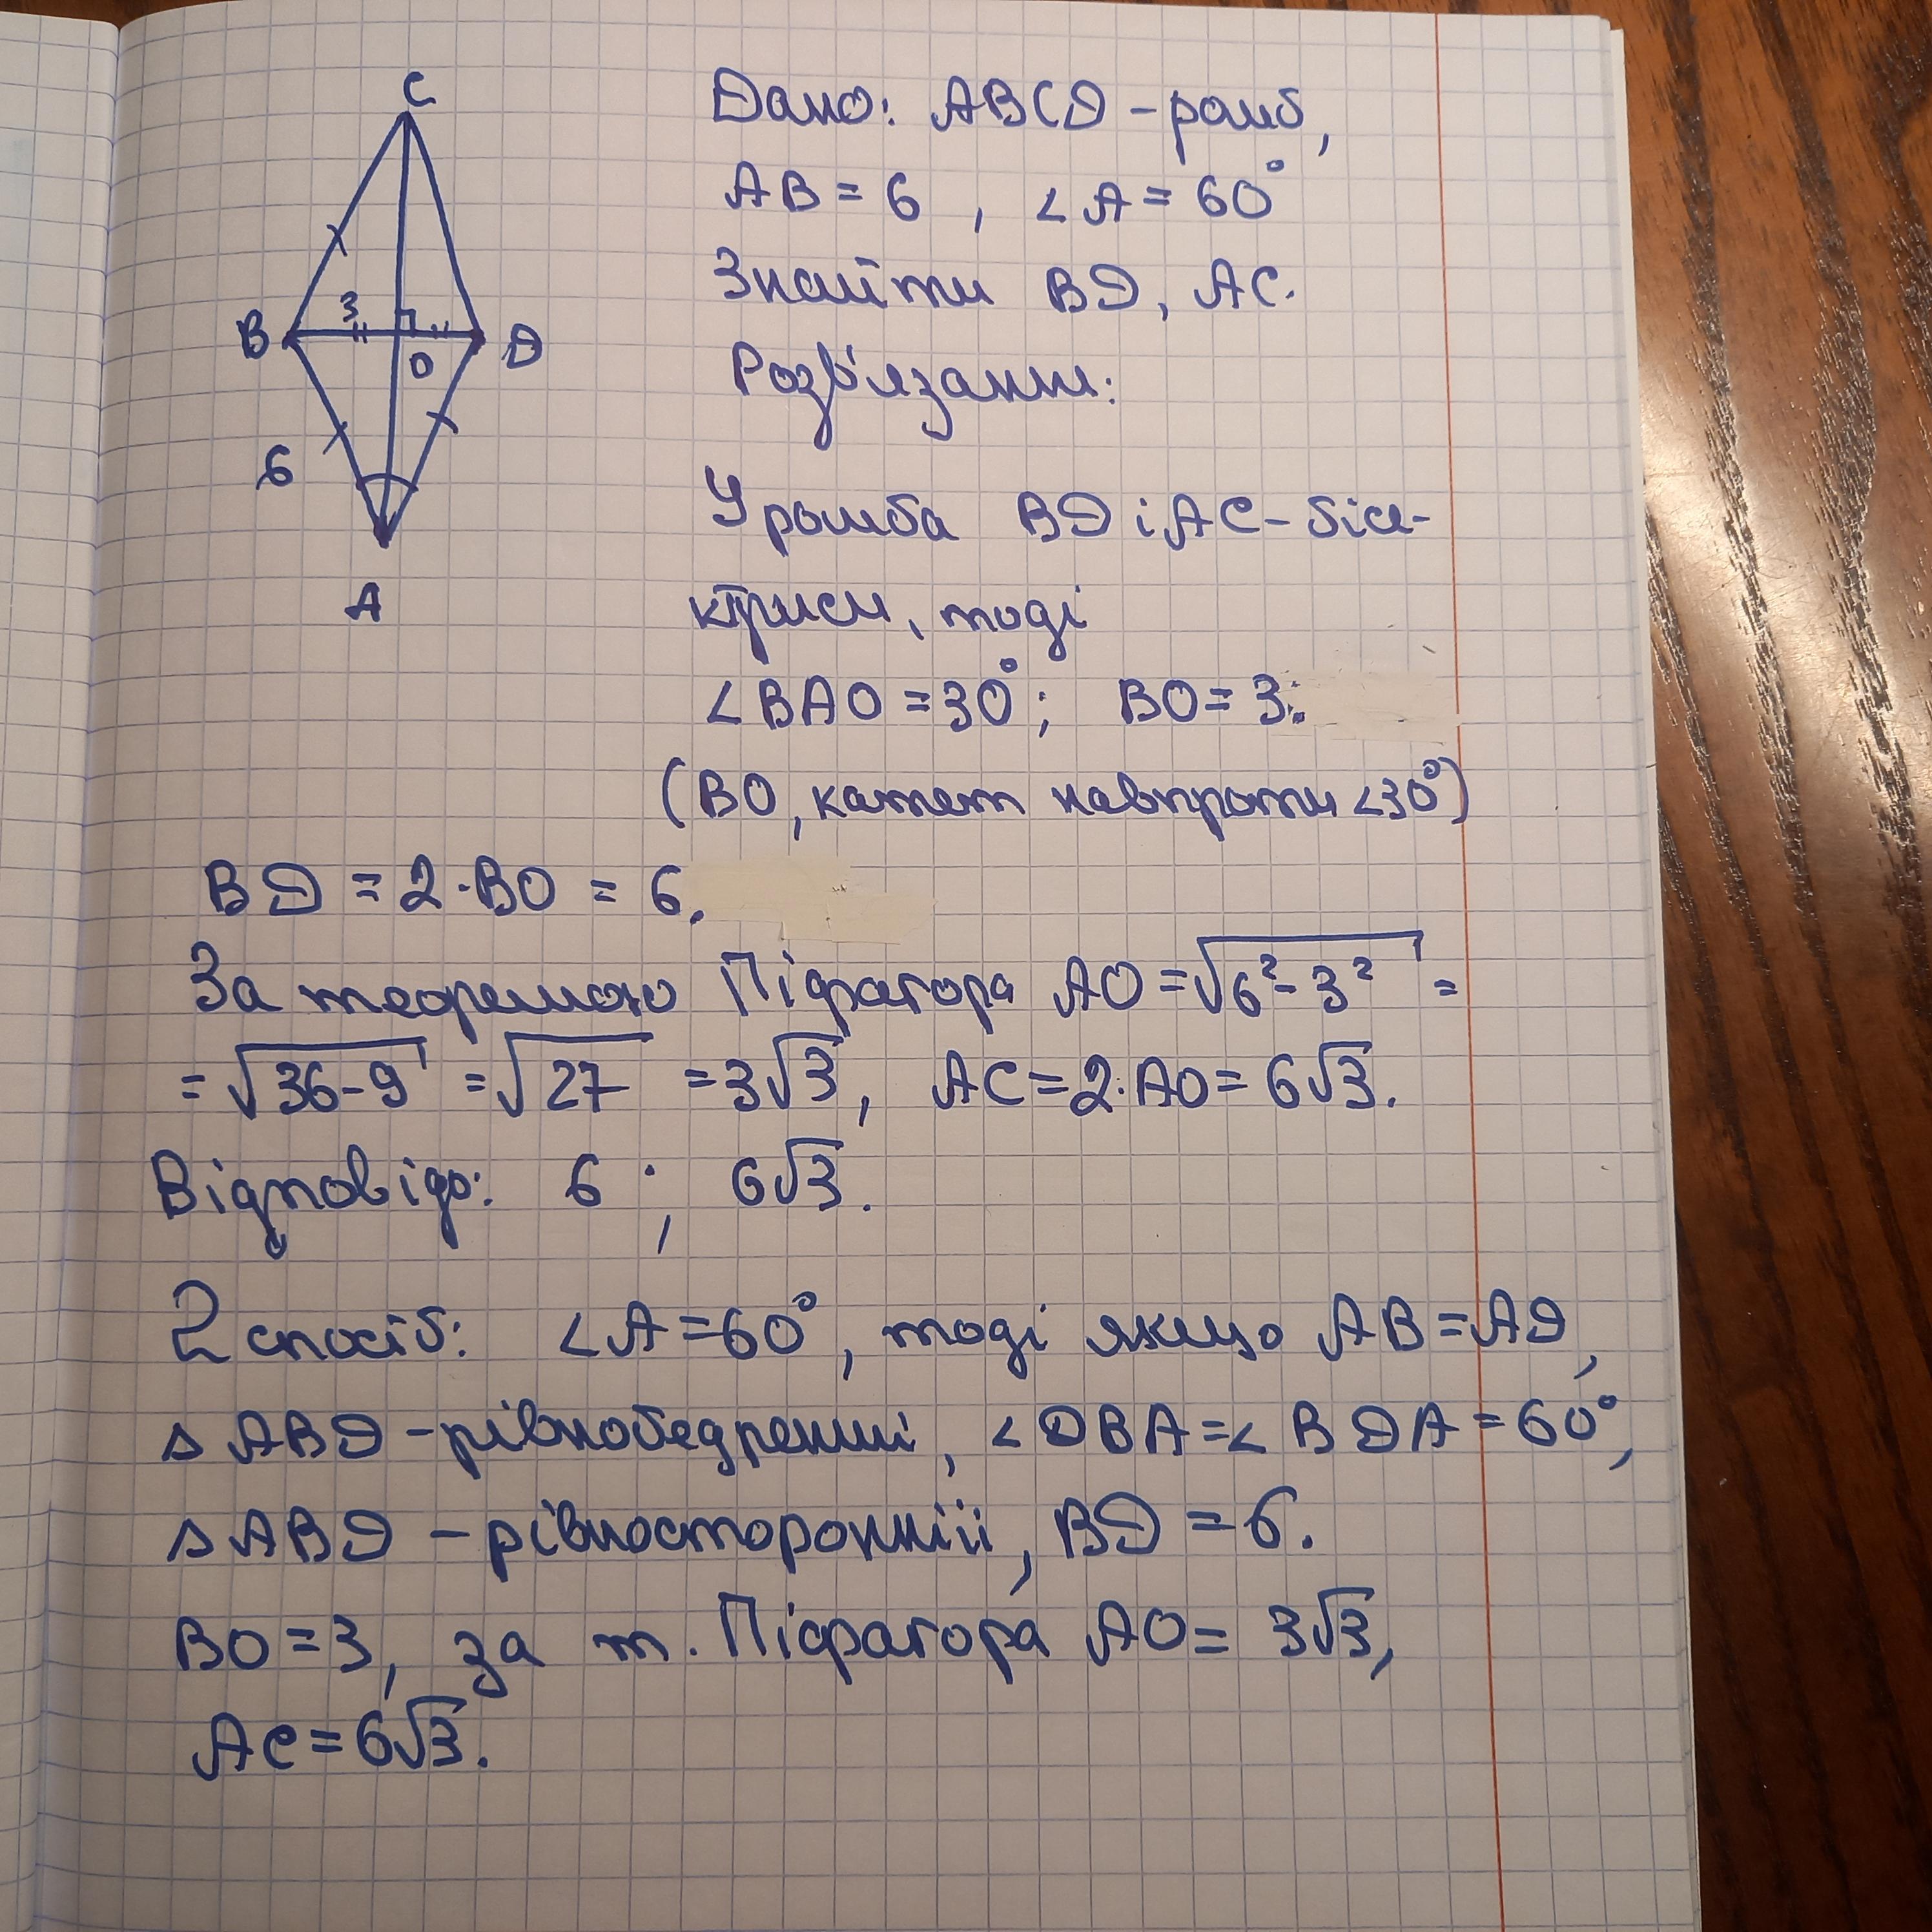 C
Дано: ABCD - ромб,
AB = 6 , ∠A = 60°
Знайти BD, AC.
3
B
O
D
Розв'язання:
6
У ромба BD і AC - бісе-
ктриси, тоді
A
∠BAO = 30° ; BO = 3.
(BO, катет навпроти ∠30°)
BD = 2 · BO = 6.
За теоремою Піфагора AO = √(6² - 3²) =
= √(36 - 9) = √27 = 3√3, AC = 2·AO = 6√3.
Відповідь: 6 ; 6√3.
2 спосіб: ∠A = 60°, тоді якщо AB = AD,
△ABD - рівнобедрений, ∠DBA = ∠BDA = 60°,
△ABD - рівносторонній, BD = 6.
BO = 3, за т. Піфагора AO = 3√3,
AC = 6√3.